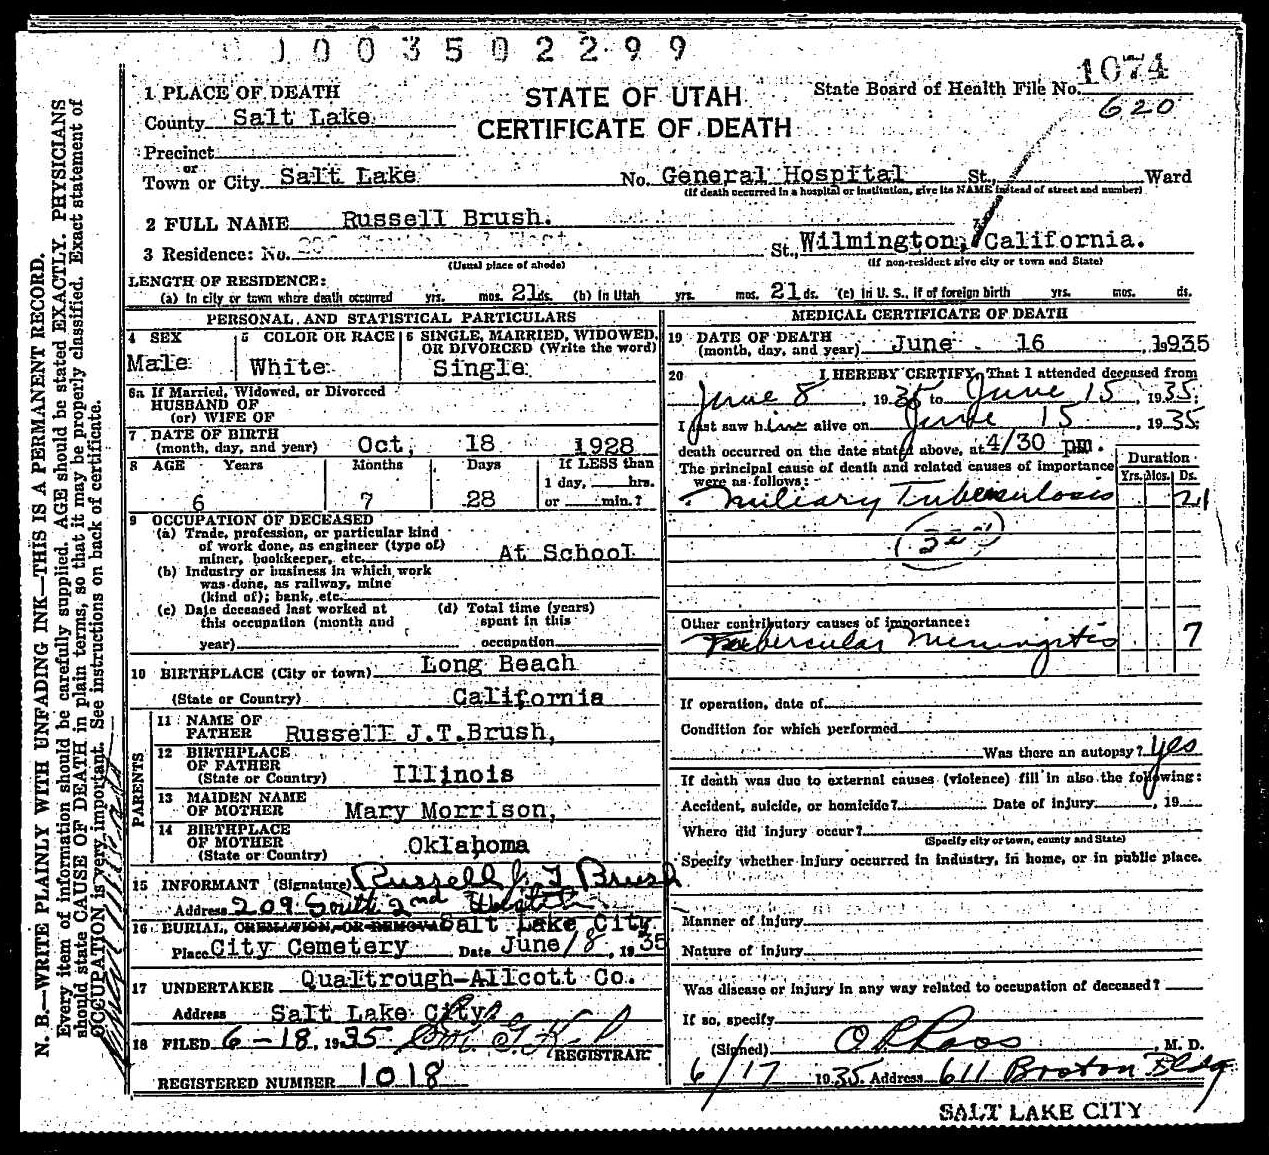 0003502299
1074
620
1 PLACE OF DEATH
STATE OF UTAH
State Board of Health File No.
County Salt Lake
CERTIFICATE OF DEATH
Precinct
or
Town or City Salt Lake No. General Hospital St., Ward
(If death occurred in a hospital or institution, give its NAME instead of street and number)
2 FULL NAME Russell Brush.
3 Residence: No. St., Wilmington, California.
(Usual place of abode) (If non-resident give city or town and State)
LENGTH OF RESIDENCE:
(a) In city or town where death occurred yrs. mos. 21 ds. (b) In Utah yrs. mos. 21 ds. (c) In U. S., if of foreign birth yrs. mos. ds.
PERSONAL AND STATISTICAL PARTICULARS
4 SEX
Male
5 COLOR OR RACE
White
6 SINGLE, MARRIED, WIDOWED,
OR DIVORCED (Write the word)
Single
6a If Married, Widowed, or Divorced
HUSBAND OF
(or) WIFE OF
7 DATE OF BIRTH
(month, day, and year) Oct, 18 1928
8 AGE Years Months Days If LESS than
1 day, hrs.
6 7 28 or min.?
9 OCCUPATION OF DECEASED
(a) Trade, profession, or particular kind
of work done, as engineer (type of)
miner, bookkeeper, etc. At School
(b) Industry or business in which work
was done, as railway, mine
(kind of); bank, etc.
(c) Date deceased last worked at
this occupation (month and
year)
(d) Total time (years)
spent in this
occupation
10 BIRTHPLACE (City or town) Long Beach
(State or Country) California
PARENTS
11 NAME OF
FATHER Russell J.T.Brush,
12 BIRTHPLACE
OF FATHER
(State or Country) Illinois
13 MAIDEN NAME
OF MOTHER Mary Morrison,
14 BIRTHPLACE
OF MOTHER
(State or Country) Oklahoma
15 INFORMANT (Signature) Russell J. T Brush
Address 209 South 2nd
16 BURIAL, CREMATION, OR REMOVAL Salt Lake City
Place City Cemetery Date June 18, 1935
17 UNDERTAKER Qualtrough-Allcott Co.
Address Salt Lake City
18 FILED 6-18, 1935
REGISTRAR
REGISTERED NUMBER 1018
MEDICAL CERTIFICATE OF DEATH
19 DATE OF DEATH
(month, day, and year) June 16, 1935
20 I HEREBY CERTIFY, That I attended deceased from
June 8, 1935 to June 15, 1935;
I last saw him alive on June 15, 1935;
death occurred on the date stated above, at 4/30 pm.
The principal cause of death and related causes of importance
were as follows:
Duration
Yrs. Mos. Ds.
Miliary Tuberculosis 21
Other contributory causes of importance:
Tubercular Meningitis 7
If operation, date of
Condition for which performed
Was there an autopsy? yes
If death was due to external causes (violence) fill in also the following:
Accident, suicide, or homicide? Date of injury , 19
Where did injury occur?
(Specify city or town, county and State)
Specify whether injury occurred in industry, in home, or in public place.
Manner of injury
Nature of injury
Was disease or injury in any way related to occupation of deceased?
If so, specify
(Signed) , M. D.
6/17 1935 Address 611 Boston Bldg
SALT LAKE CITY
N. B.—WRITE PLAINLY WITH UNFADING INK—THIS IS A PERMANENT RECORD.
Every item of information should be carefully supplied. AGE should be stated EXACTLY. PHYSICIANS
should state CAUSE OF DEATH in plain terms, so that it may be properly classified. Exact statement of
OCCUPATION is very important. See instructions on back of certificate.